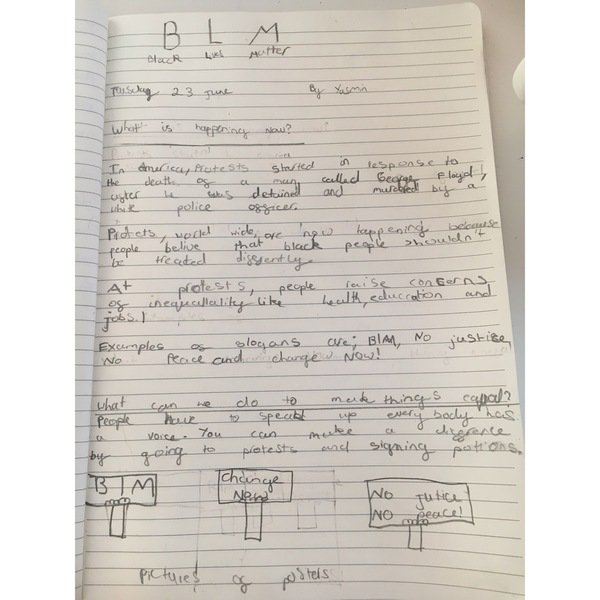 B L M
Black Lives Matter
Tuesday 23 June By Yasmin
What is happening now?
In America, Protests started in response to
the death of a man called George Floyd,
after he was detained and murdered by a
white police officer.
Protets, world wide, are now happening because
people belive that black people shouldn't
be treated differently
At protests, people raise concerns
of inequallality like health, educration and
jobs.
Examples of slogans are; BLM, No justice
No Peace and change NOW!
what can we do to make things equal?
People have to speak up every body has
a voice. You can make a diference
by going to protests and signing potions.
BLM
Change
Now
NO jutice
NO peace!
Pictures of posters